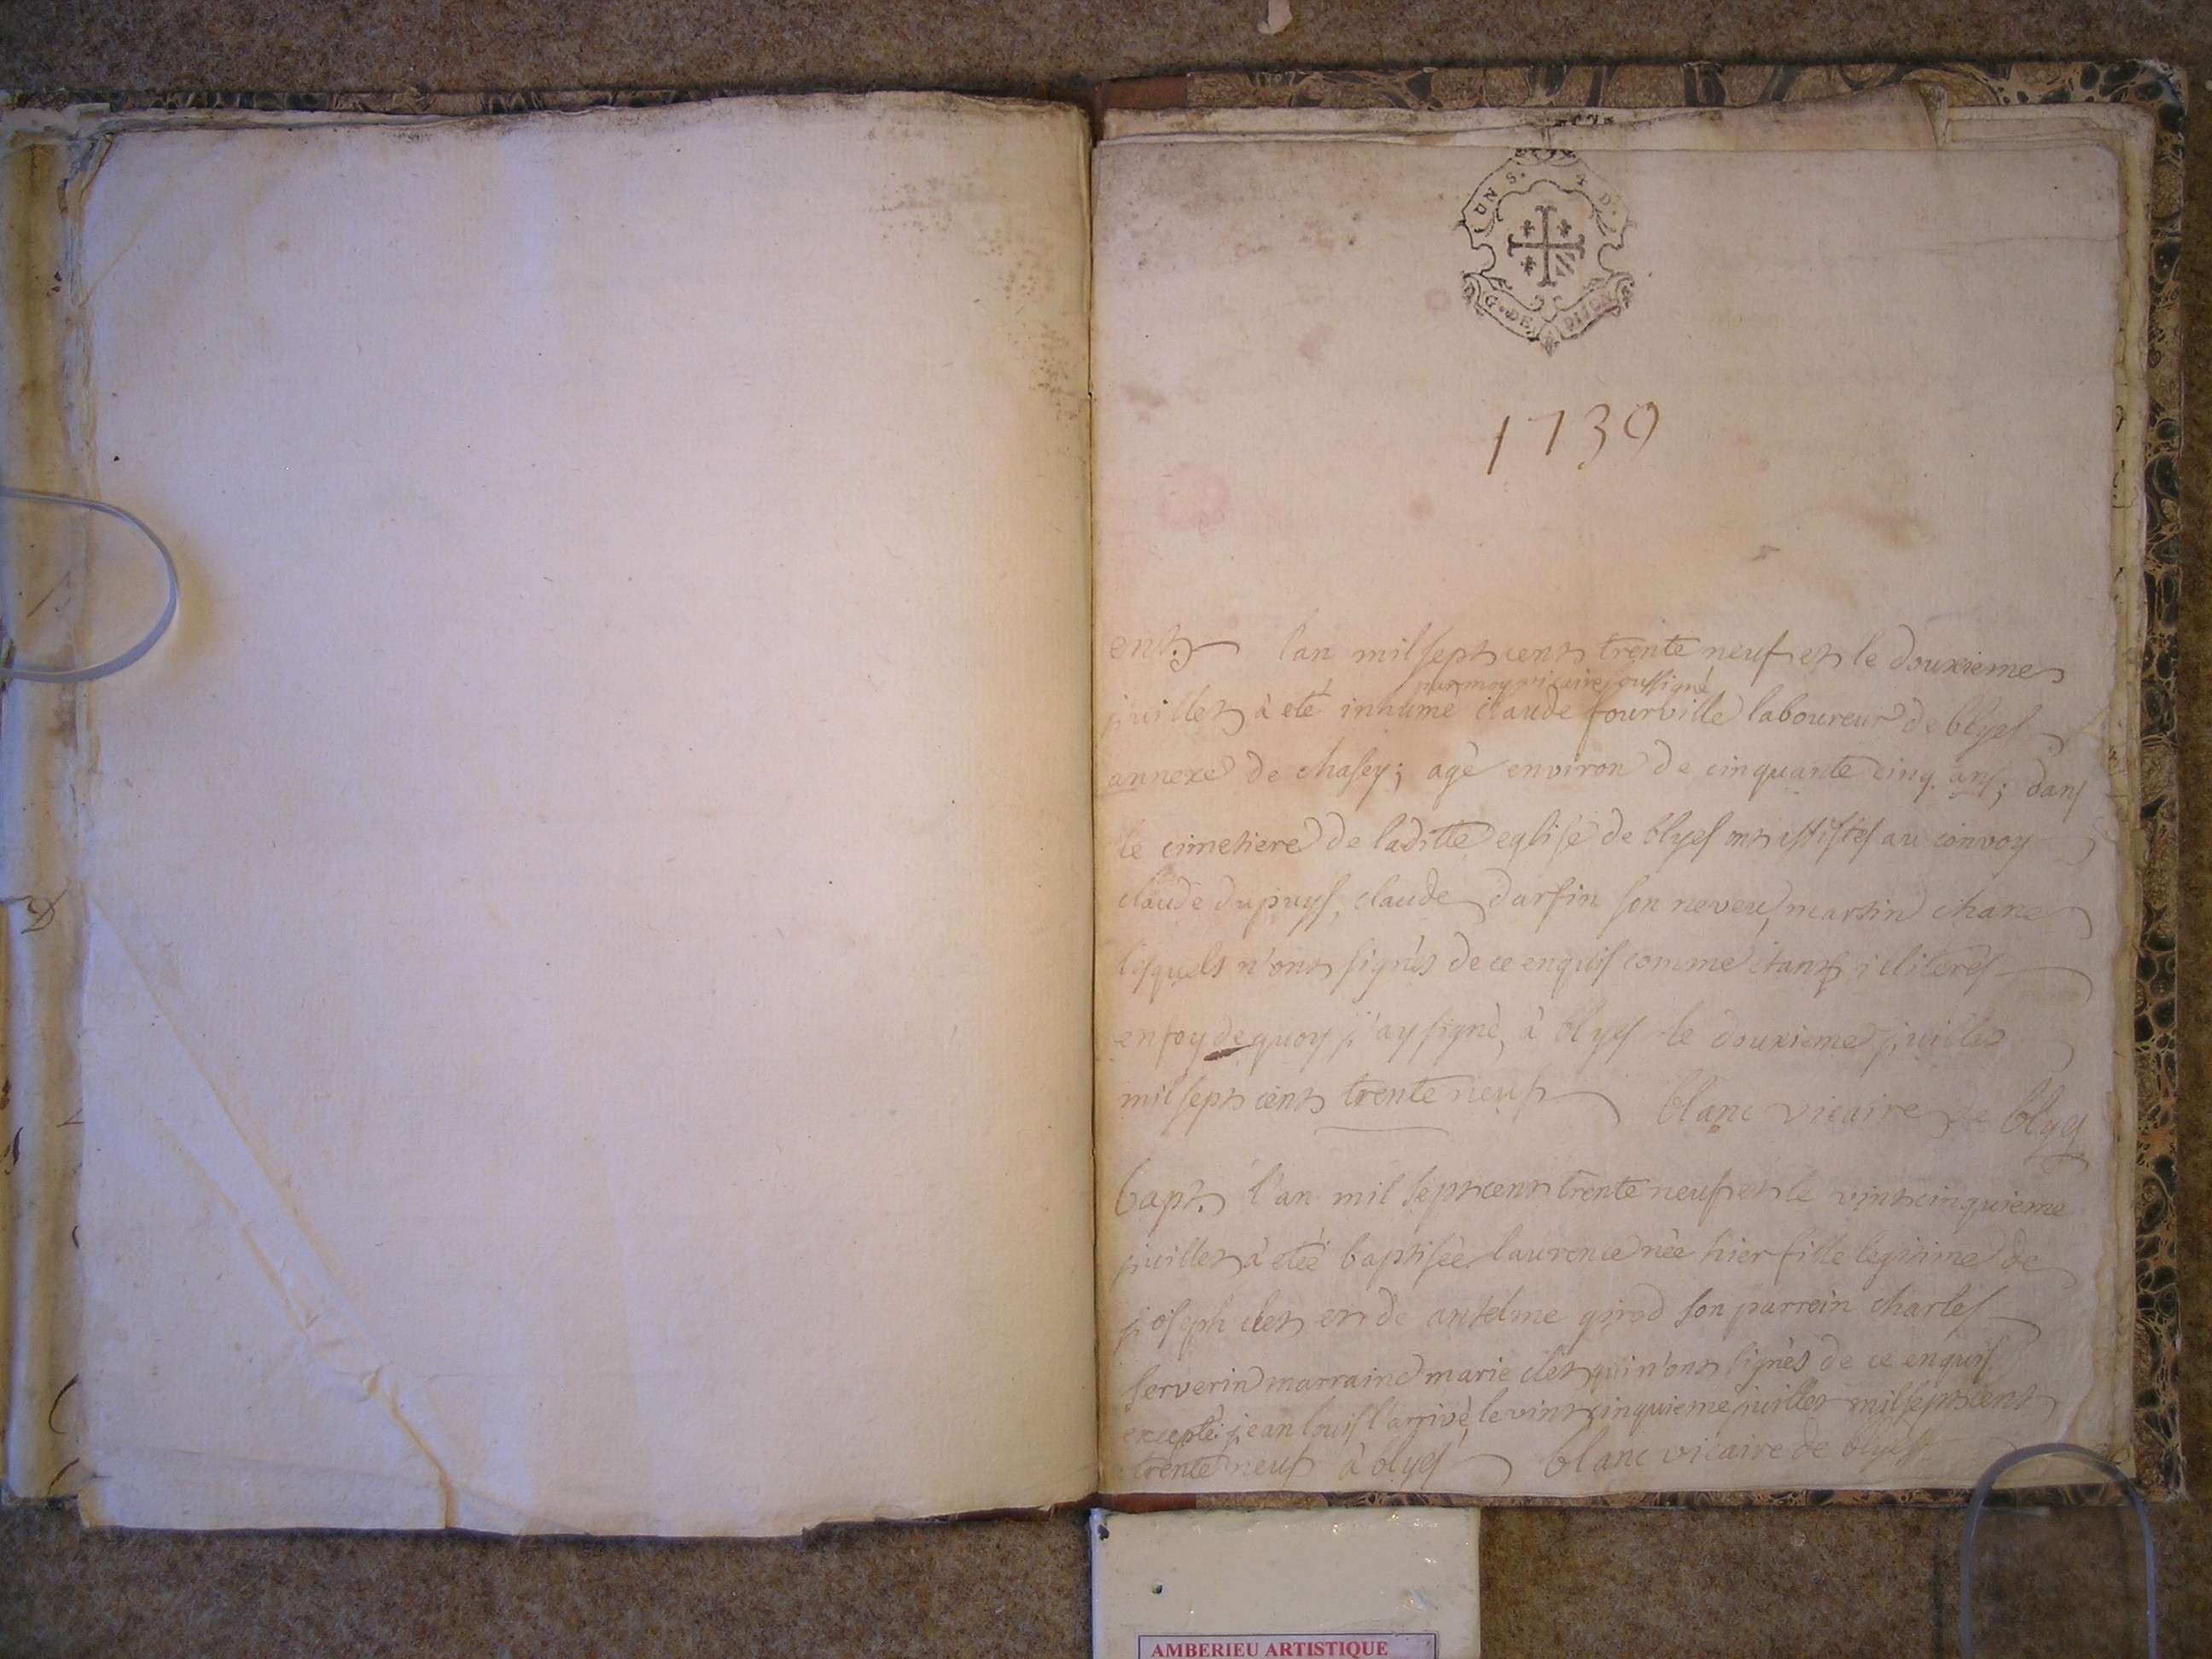 UN S. 4 D.
G. DE DIJON
1739
ent. l'an mil sept cent trente neuf et le douxieme
par moy vicaire soussigné
juillet à eté inhumé claude fourville laboureur de blyes
annexe de chasey; agé environ de cinquante cinq ans; dans
le cimetiere de laditte eglise de blyes ont assistés au convoy
claude dupuys, claude darfin son neveu, martin chane
lesquels n'ont signés de ce enquis comme étant illiterés
en foy de quoy j'ay signé, à blyes le douxieme juillet
mil sept cent trente neuf blanc vicaire de blyes
bapt. l'an mil sept cent trente neuf et le vint cinquieme
juillet à eteé baptisée laurence née hier fille legitime de
joseph clet et de antelme girod son parrein charles
serverin marraine marie clet qui n'ont signés de ce enquis
excepté jean louis l'arrivé, le vint cinquieme juillet mil sept cent
trente neuf à blyes blanc vicaire de blyes
AMBERIEU ARTISTIQUE